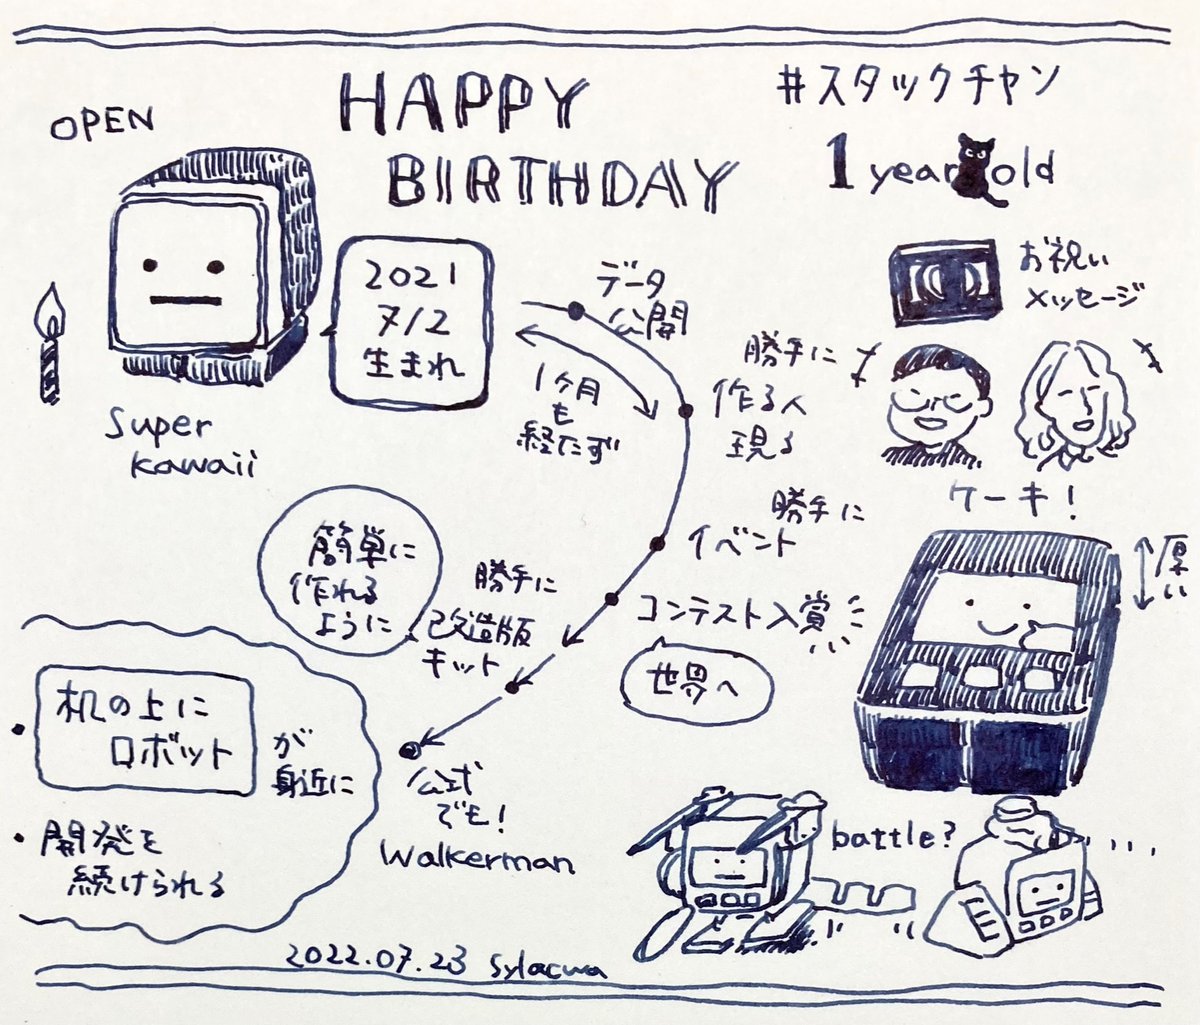 HAPPY
BIRTHDAY
#スタックチャン
1 year old
OPEN
Super
kawaii
2021
7/2
生まれ
データ
公開
1ヶ月
も
経たず
勝手に
作る人
現る
勝手に
イベント
コンテスト入賞
世界へ
勝手に
改造版
キット
簡単に
作れる
ように
公式
でも!
Walkerman
机の上に
ロボット
が
身近に
開発を
続けられる
お祝い
メッセージ
ケーキ!
厚い
battle?
....
2022.07.23 Sylacwa